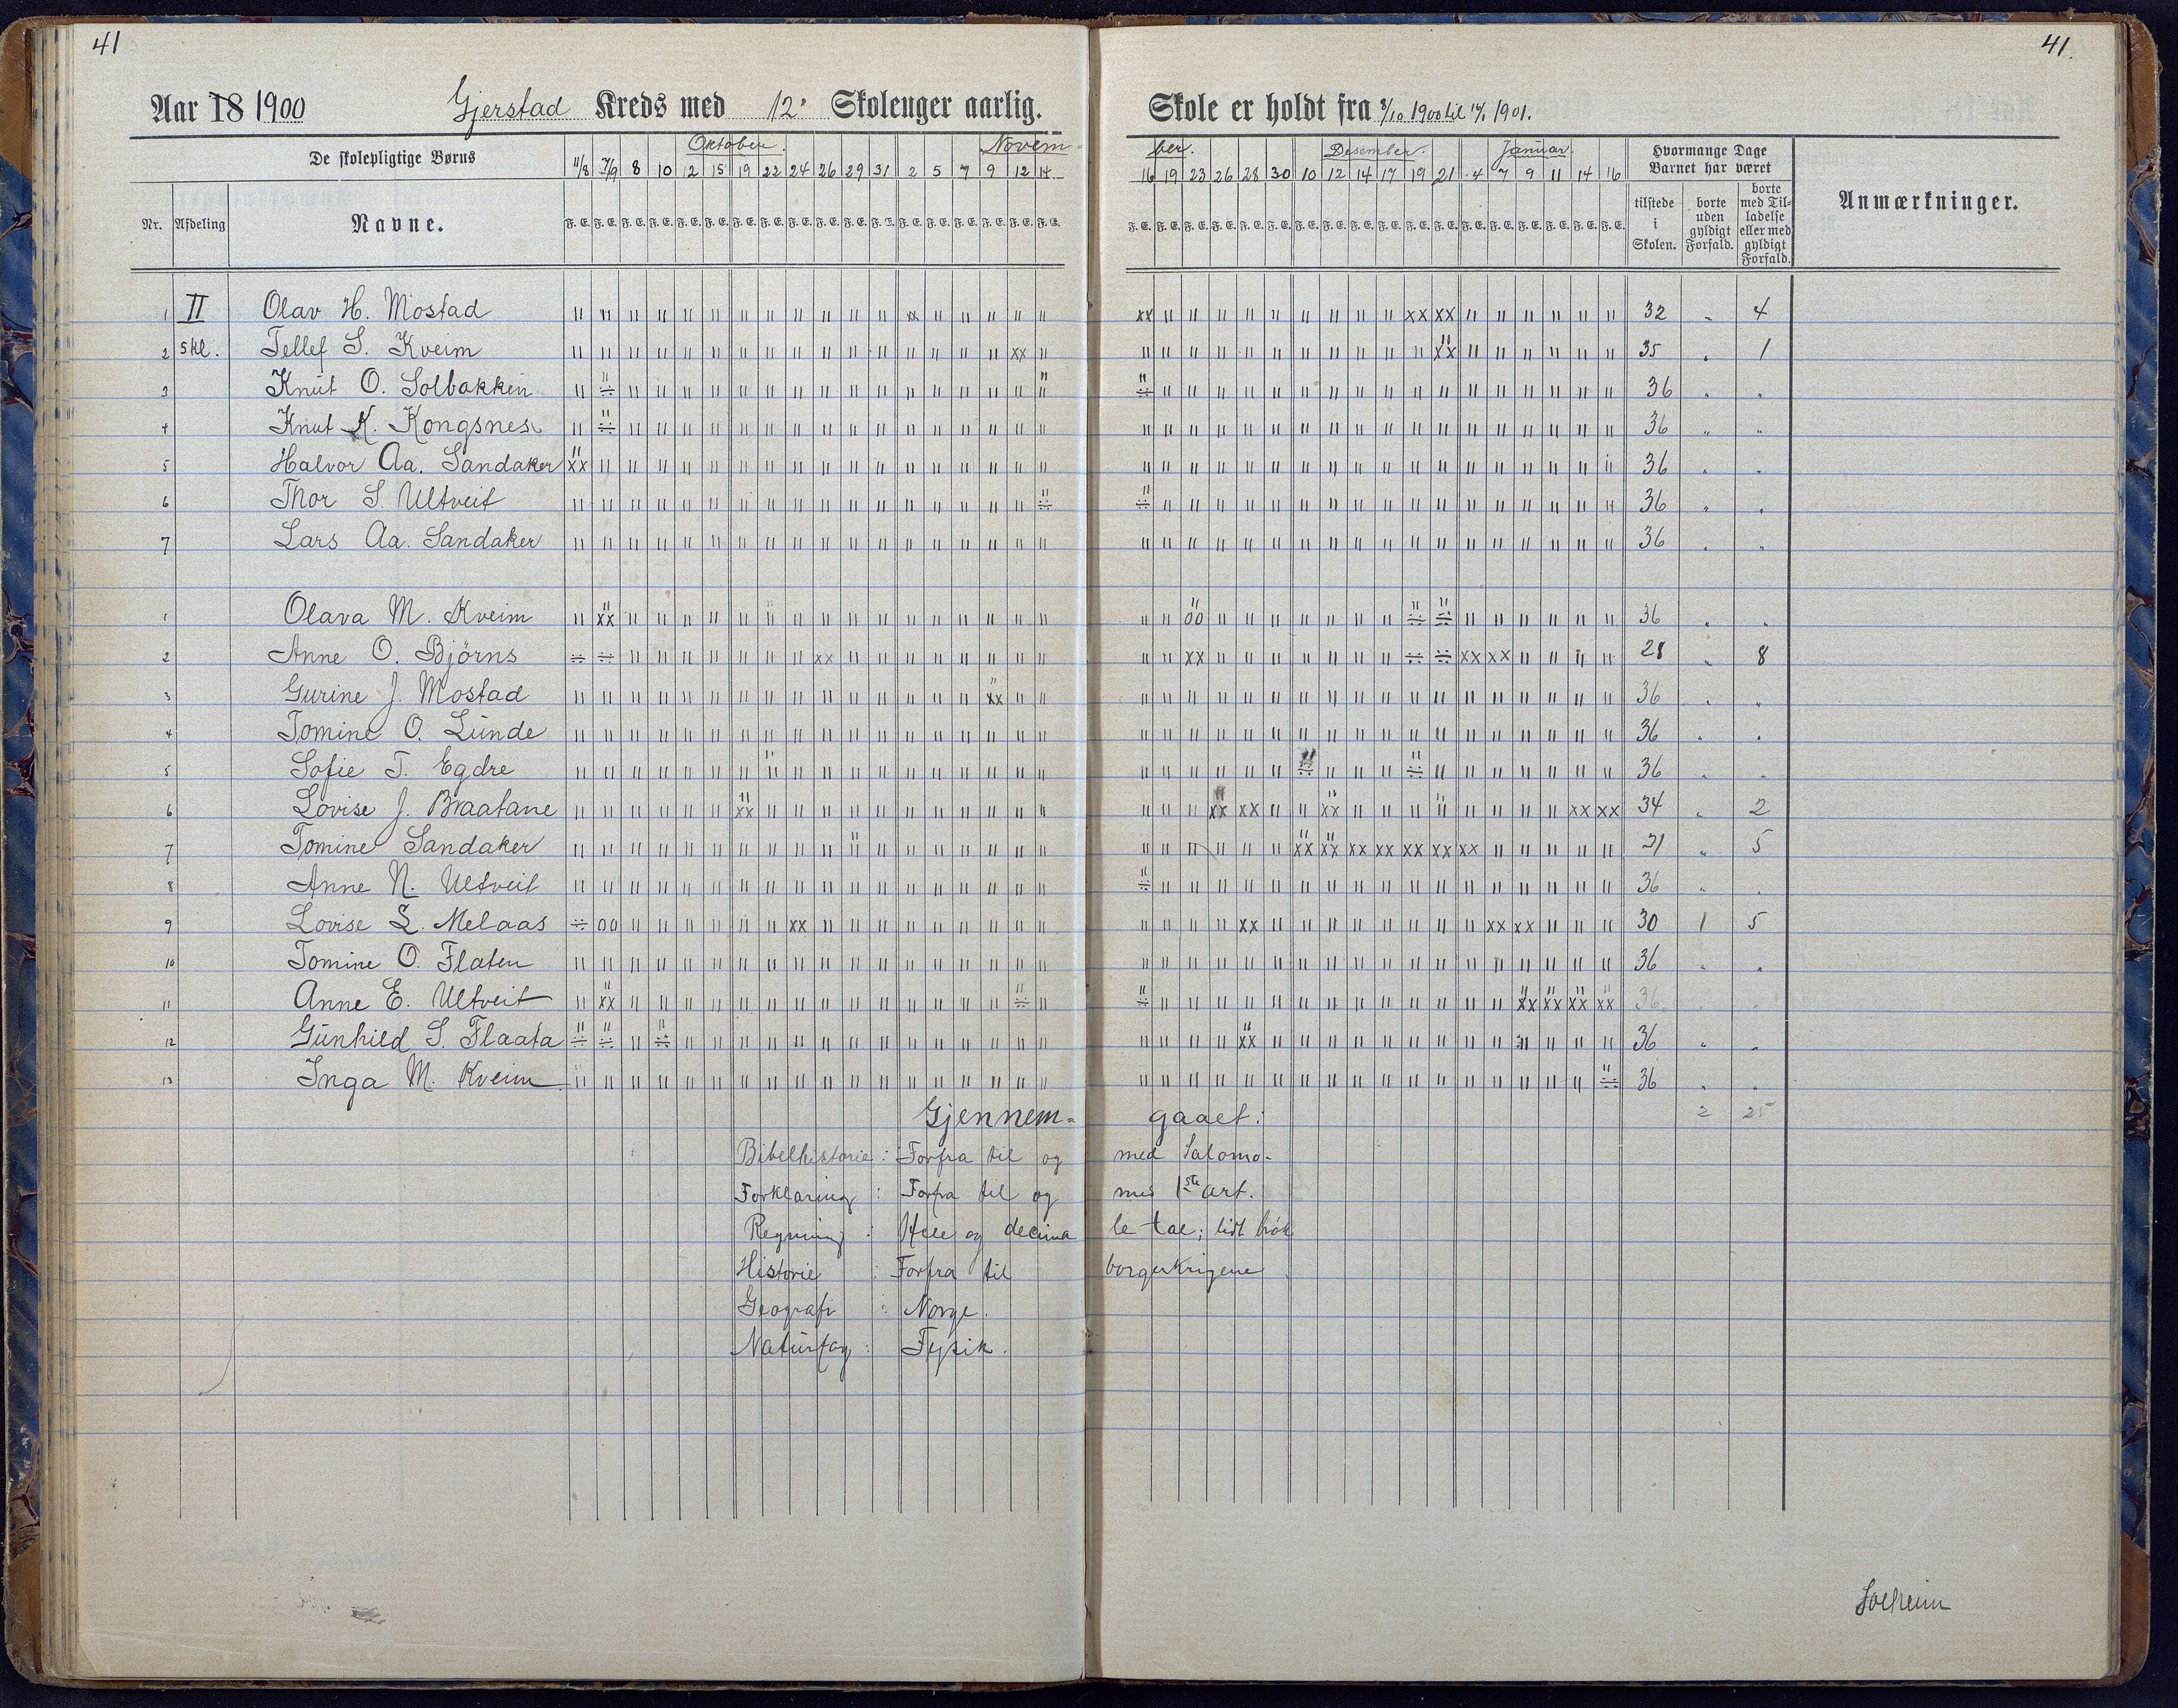 41
41.
Aar 18 1900 Gjerstad Kreds med 12 Skoleuger aarlig.
Skole er holdt fra 8/10 1900 til 1901.
De skolepligtige Børns
Oktober. Novem-
ber. Desember. Januar.
Hvormange Dage Barnet har været
11/8 7/9 8 10 12 15 19 22 24 26 29 31 2 5 7 9 12 14
16 19 23 26 28 30 10 12 14 17 19 21 4 7 9 11 14 16
Nr. Afdeling Navne.
F. E. F. E. F. E. F. E. F. E. F. E. F. E. F. E. F. E. F. E. F. E. F. E. F. E. F. E. F. E. F. E. F. E. F. E.
F. E. F. E. F. E. F. E. F. E. F. E. F. E. F. E. F. E. F. E. F. E. F. E. F. E. F. E. F. E. F. E. F. E. F. E.
tilstede i Skolen.
borte uden gyldigt Forfald.
borte med Tilladelse eller med gyldigt Forfald.
Anmærkninger.
1 II Olav H. Mostad 32 " 4
2 skl. Tellef S. Kveim 35 " 1
3 Knut O. Solbakken 36 " "
4 Knut K. Kongsnes 36 " "
5 Halvor Aa. Sandaker 36 " "
6 Thor S. Ultveit 36 " "
7 Lars Aa. Sandaker 36 " "
1 Olava M. Kveim 36 " "
2 Anne O. Bjørns 28 " 8
3 Gurine J. Mostad 36 " "
4 Tomine O. Lunde 36 " "
5 Sofie T. Egdre 36 " "
6 Lovise J. Braatane 34 " 2
7 Tomine Sandaker 31 " 5
8 Anne N. Ultveit 36 " "
9 Lovise L. Melaas 30 1 5
10 Tomine O. Flaten 36 " "
11 Anne E. Ultveit 36 " "
12 Gunhild S. Flaata 36 " "
13 Inga M. Kveim 36 " "
Gjennem- gaaet: 2 25
Bibelhistorie : Forfra til og med Salomo.
Forklaring : Forfra til og med 1ste art.
Regning : Hele og decima le tal; lidt brøk
Historie : Forfra til borgerkrigene
Geografi : Norge.
Naturfag : Fysik.
Solheim